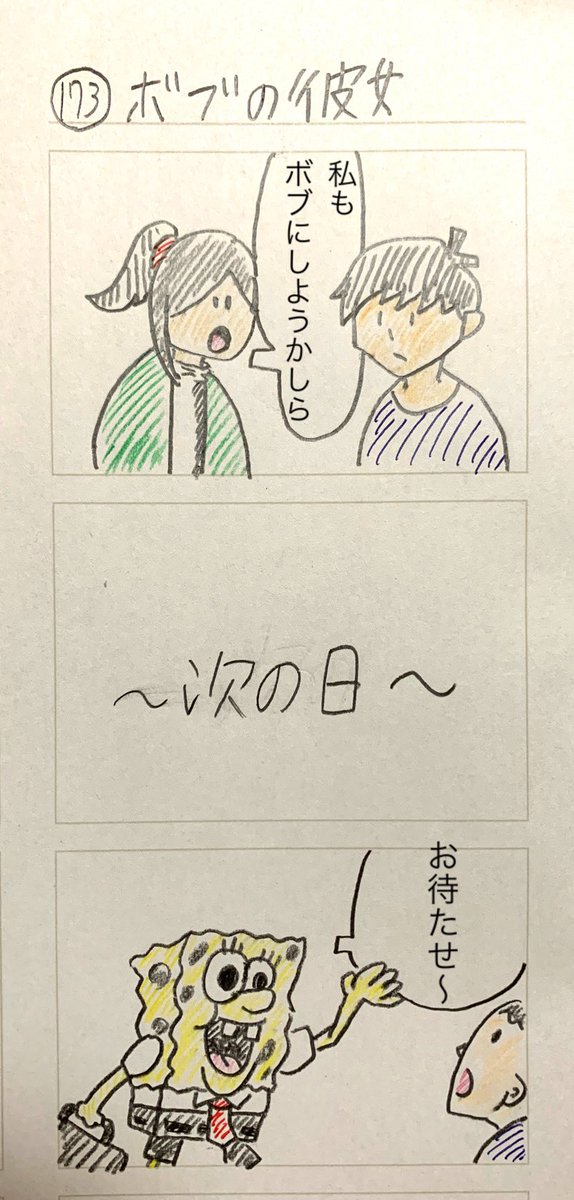 173 ボブの彼女
私も
ボブにしようかしら
～次の日～
お待たせ～